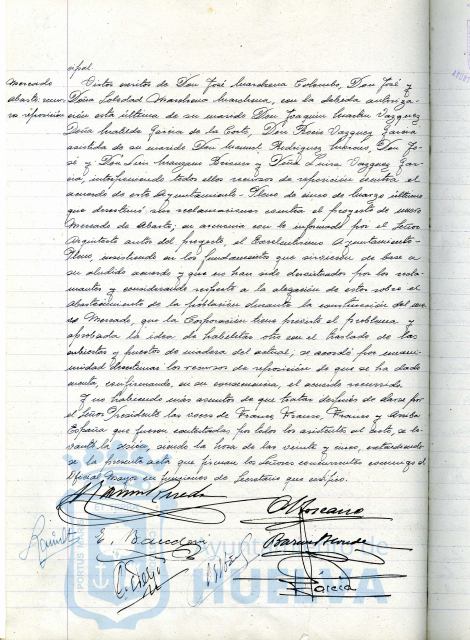 cipal.
Mercado
abasto. recur-
so reposición
Vistos escritos de Don José Marchena Colombo, Don José y
Doña Soledad Marchena Marchena, con la debida autoriza-
ción esta última de su marido Don Joaquín Martín Vazquez
Doña Matilde García de la Corte, Don Vazquez García
asistida de su marido Don Manuel Rodriguez Don Jo-
sé y Don y Doña Luisa Vazquez Gar-
cía, interponiendo todos ellos recursos de reposición contra el
acuerdo de este Ayuntamiento-Pleno de cinco de marzo último
que desestimó sus reclamaciones contra el proyecto de nuevo
Mercado de Abasto; en armonía con lo informado por el Señor
Arquitecto autor del proyecto, el Excelentísimo Ayuntamiento-
Pleno, insistiendo en los fundamentos que sirvieron de base a
su aludido acuerdo y que no han sido desvirtuados por los recla-
mantes y considerando respecto a la alegación de estos sobre el
abastecimiento de la población durante la construcción del nue-
vo Mercado, que la Corporación tiene previsto el problema y
aprobada la idea de habilitar otro con el traslado de las
cubiertas y puestos de madera del actual; se acordó por unani-
midad desestimar los recursos de reposición de que se ha dado
cuenta, confirmando, en su consecuencia, el acuerdo recurrido.
Y no habiendo más asuntos de que tratar después de darse por
el Señor Presidente las voces de Franco, Franco, Franco y Arriba
España que fueron contestadas por todos los asistentes al acto, se le-
vantó la sesión, siendo la hora de las veinte y cinco, extendiendo-
se la presente acta que firman los Señores concurrentes conmigo el
Oficial Mayor en funciones de Secretario que certifico.
E.
García
Ayuntamiento de
HUELVA
PORTUS